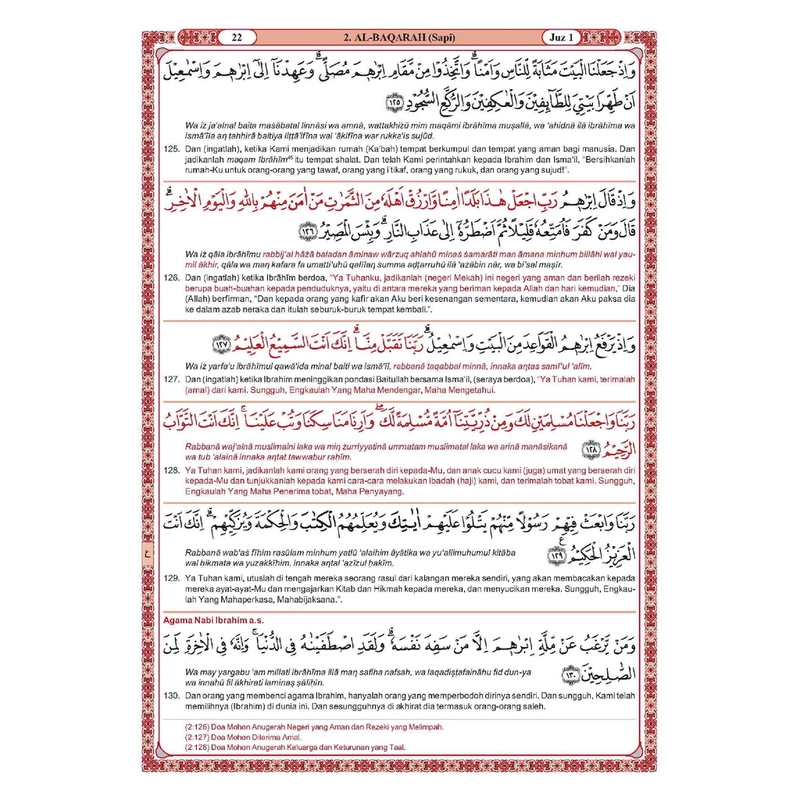 22
2. AL-BAQARAH (Sapi)
Juz 1
وَاِذْ جَعَلْنَا الْبَيْتَ مَثَابَةً لِّلنَّاسِ وَاَمْنًاۗ وَاتَّخِذُوْا مِنْ مَّقَامِ اِبْرٰهٖمَ مُصَلًّىۗ وَعَهِدْنَآ اِلٰٓى اِبْرٰهٖمَ وَاِسْمٰعِيْلَ
اَنْ طَهِّرَا بَيْتِيَ لِلطَّاۤىِٕفِيْنَ وَالْعٰكِفِيْنَ وَالرُّكَّعِ السُّجُوْدِ ١٢٥
Wa iz ja'alnal baita masābatal linnāsi wa amnā, wattakhizū mim maqāmi ibrāhīma muṣallā, wa 'ahidnā ilā ibrāhīma wa
Ismā'īla an ṭahhirā baitiya liṭṭā'ifīna wal 'ākifīna war rukka'is sujūd.
125. Dan (ingatlah), ketika Kami menjadikan rumah (Ka'bah) tempat berkumpul dan tempat yang aman bagi manusia. Dan
jadikanlah maqam Ibrāhīm itu tempat shalat. Dan telah Kami perintahkan kepada Ibrahim dan Isma'il, "Bersihkanlah
rumah-Ku untuk orang-orang yang tawaf, orang yang i'tikaf, orang yang rukuk, dan orang yang sujud!".
وَاِذْ قَالَ اِبْرٰهٖمُ رَبِّ اجْعَلْ هٰذَا بَلَدًا اٰمِنًا وَّارْزُقْ اَهْلَهٗ مِنَ الثَّمَرٰتِ مَنْ اٰمَنَ مِنْهُمْ بِاللّٰهِ وَالْيَوْمِ الْاٰخِرِۗ
قَالَ وَمَنْ كَفَرَ فَاُمَتِّعُهٗ قَلِيْلًا ثُمَّ اَضْطَرُّهٗٓ اِلٰى عَذَابِ النَّارِۗ وَبِئْسَ الْمَصِيْرُ ١٢٦
Wa iz qāla ibrāhīmu rabbij'al hāzā baladan āminaw wārzuq ahlahū minas samarāti man āmana minhum billāhi wal yau-
mil ākhir, qāla wa man kafara fa umatti'uhū qalīlan summa aḍṭarruhū ilā 'azābin nār, wa bi'sal maṣīr.
126. Dan (ingatlah) ketika Ibrahim berdoa, "Ya Tuhanku, jadikanlah (negeri Mekah) ini negeri yang aman dan berilah rezeki
berupa buah-buahan kepada penduduknya, yaitu di antara mereka yang beriman kepada Allah dan hari kemudian," Dia
(Allah) berfirman, "Dan kepada orang yang kafir akan Aku beri kesenangan sementara, kemudian akan Aku paksa dia
ke dalam azab neraka dan itulah seburuk-buruk tempat kembali.".
وَاِذْ يَرْفَعُ اِبْرٰهٖمُ الْقَوَاعِدَ مِنَ الْبَيْتِ وَاِسْمٰعِيْلُۗ رَبَّنَا تَقَبَّلْ مِنَّاۗ اِنَّكَ اَنْتَ السَّمِيْعُ الْعَلِيْمُ ١٢٧
Wa iz yarfa'u Ibrāhīmul qawā'ida minal baiti wa Ismā'īl, rabbanā taqabbal minnā, innaka anṭas samī'ul 'alīm.
127. Dan (ingatlah) ketika Ibrahim meninggikan pondasi Baitullah bersama Isma'il, (seraya berdoa), "Ya Tuhan kami, terimalah
(amal) dari kami. Sungguh, Engkaulah Yang Maha Mendengar, Maha Mengetahui.
رَبَّنَا وَاجْعَلْنَا مُسْلِمَيْنِ لَكَ وَمِنْ ذُرِّيَّتِنَآ اُمَّةً مُّسْلِمَةً لَّكَۖ وَاَرِنَا مَنَاسِكَنَا وَتُبْ عَلَيْنَاۚ اِنَّكَ اَنْتَ التَّوَّابُ
الرَّحِيْمُ ١٢٨
Rabbanā waj'alnā muslimaini laka wa min zurriyyatinā ummatam muslimatal laka wa arinā manāsikanā
wa tub 'alainā innaka anṭat tawwabur raḥīm.
128. Ya Tuhan kami, jadikanlah kami orang yang berserah diri kepada-Mu, dan anak cucu kami (juga) umat yang berserah diri
kepada-Mu dan tunjukkanlah kepada kami cara-cara melakukan ibadah (haji) kami, dan terimalah tobat kami. Sungguh,
Engkaulah Yang Maha Penerima tobat, Maha Penyayang.
رَبَّنَا وَابْعَثْ فِيْهِمْ رَسُوْلًا مِّنْهُمْ يَتْلُوْا عَلَيْهِمْ اٰيٰتِكَ وَيُعَلِّمُهُمُ الْكِتٰبَ وَالْحِكْمَةَ وَيُزَكِّيْهِمْۗ اِنَّكَ اَنْتَ
الْعَزِيْزُ الْحَكِيْمُ ࣖ ١٢٩
ع
Rabbanā wab'as fīhim rasūlam minhum yatlū 'alaihim āyātika wa yu'allimuhumul kitāba
wal ḥikmata wa yuzakkīhim, innaka anṭal 'azīzul ḥakīm.
129. Ya Tuhan kami, utuslah di tengah mereka seorang rasul dari kalangan mereka sendiri, yang akan membacakan kepada
mereka ayat-ayat-Mu dan mengajarkan Kitab dan Hikmah kepada mereka, dan menyucikan mereka. Sungguh, Engkau-
lah Yang Mahaperkasa, Mahabijaksana.".
Agama Nabi Ibrahim a.s.
وَمَنْ يَّرْغَبُ عَنْ مِّلَّةِ اِبْرٰهٖمَ اِلَّا مَنْ سَفِهَ نَفْسَهٗۗ وَلَقَدِ اصْطَفَيْنٰهُ فِى الدُّنْيَاۚ وَاِنَّهٗ فِى الْاٰخِرَةِ لَمِنَ
الصّٰلِحِيْنَ ١٣٠
Wa may yargabu 'am millati ibrāhīma illā man safiha nafsah, wa laqadiṣṭafaināhu fid dun-ya
wa innahū fil ākhirati laminaṣ ṣāliḥīn.
130. Dan orang yang membenci agama Ibrahim, hanyalah orang yang memperbodoh dirinya sendiri. Dan sungguh, Kami telah
memilihnya (Ibrahim) di dunia ini. Dan sesungguhnya di akhirat dia termasuk orang-orang saleh.
(2:126) Doa Mohon Anugerah Negeri yang Aman dan Rezeki yang Melimpah.
(2:127) Doa Mohon Diterima Amal.
(2:128) Doa Mohon Anugerah Keluarga dan Keturunan yang Taat.